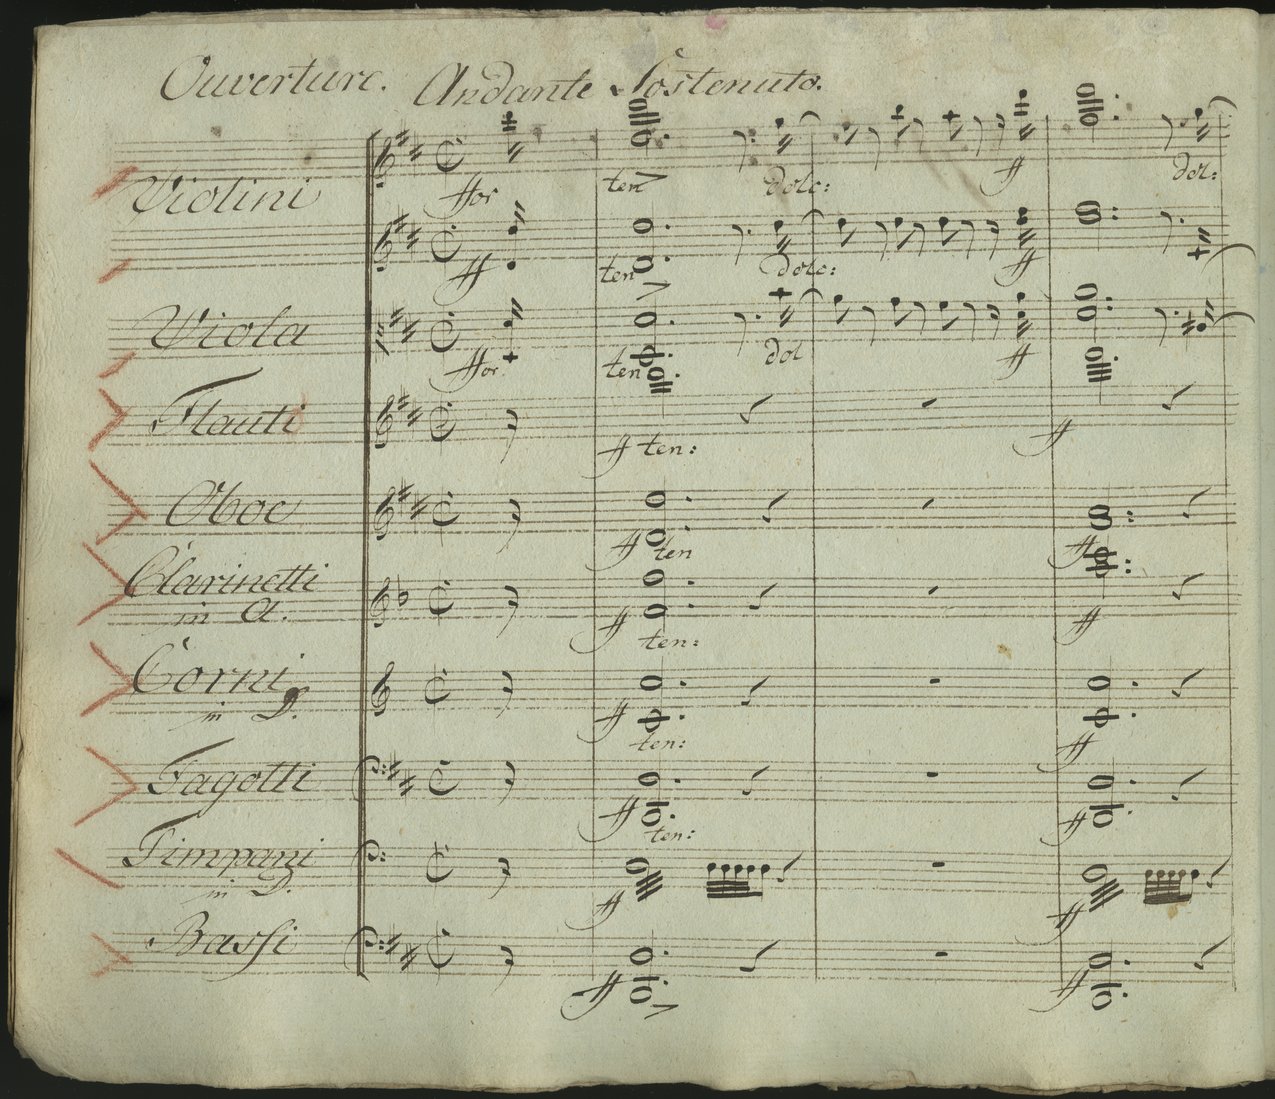 Ouverture. Andante Sostenuto.
Violini
ffor ten dolc: ff dol:
ff ten dolc: ff
Viola
ffor ten dol ff
Flauti
ff ten: ff
Oboe
ff ten ff
Clarinetti
in A.
ff ten: ff
Corni
in D.
ff ten: ff
Fagotti
ff ten: ff
Timpani
in D.
ff ff
Bassi
ff ff